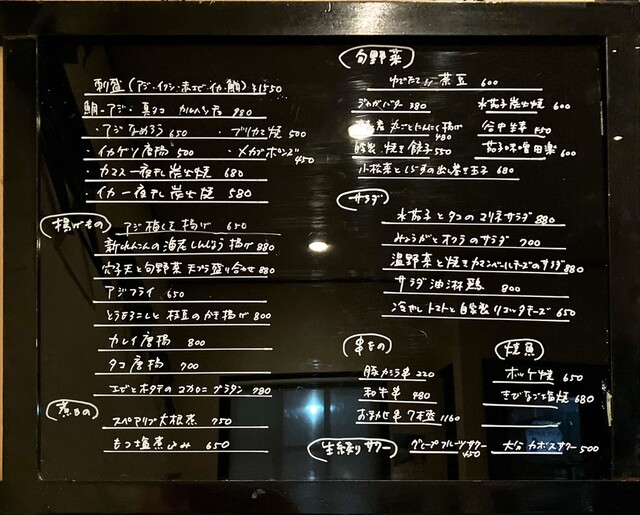 刺盛(アジ・イワシ・赤エビ・イカ・鯛) ¥1550
鯛・アジ・真タコ カルパッチョ 980
・アジなめろう 650
・ブリカマ焼 500
・イカゲソ唐揚 500
・メカブポンズ 450
・カマス一夜干し炭火焼 680
・イカ一夜干し炭火焼 580
揚げもの
アジ梅しそ揚げ 650
新れんこんの海老しんじょう揚げ 880
穴子天と旬野菜天ぷら盛り合せ 880
アジフライ 650
とうもろこしと枝豆のかき揚げ 800
カレイ唐揚 800
タコ唐揚 700
エビとホタテのマカロニグラタン 780
煮もの
スペアリブ大根煮 750
もつ塩煮込み 650
旬野菜
ゆでたて!! 茶豆 600
ジャガバター 380
水茄子炭火焼 600
産 丸ごとにんにく揚げ 480
谷中生姜 450
焼き餃子 550
茄子味噌田楽 600
小松菜としらすの出し巻き玉子 680
サラダ
水茄子とタコのマリネサラダ 880
みょうがとオクラのサラダ 700
温野菜と焼きカマンベールチーズのサラダ 880
サラダ油淋鶏 800
冷やしトマトと自家製リコッタチーズ 650
串もの
豚カシラ串 220
和牛串 480
おまかせ串7本盛 1160
焼魚
ホッケ焼 650
きびなご塩焼 680
生絞りサワー
グレープフルーツサワー 450
大分カボスサワー 500